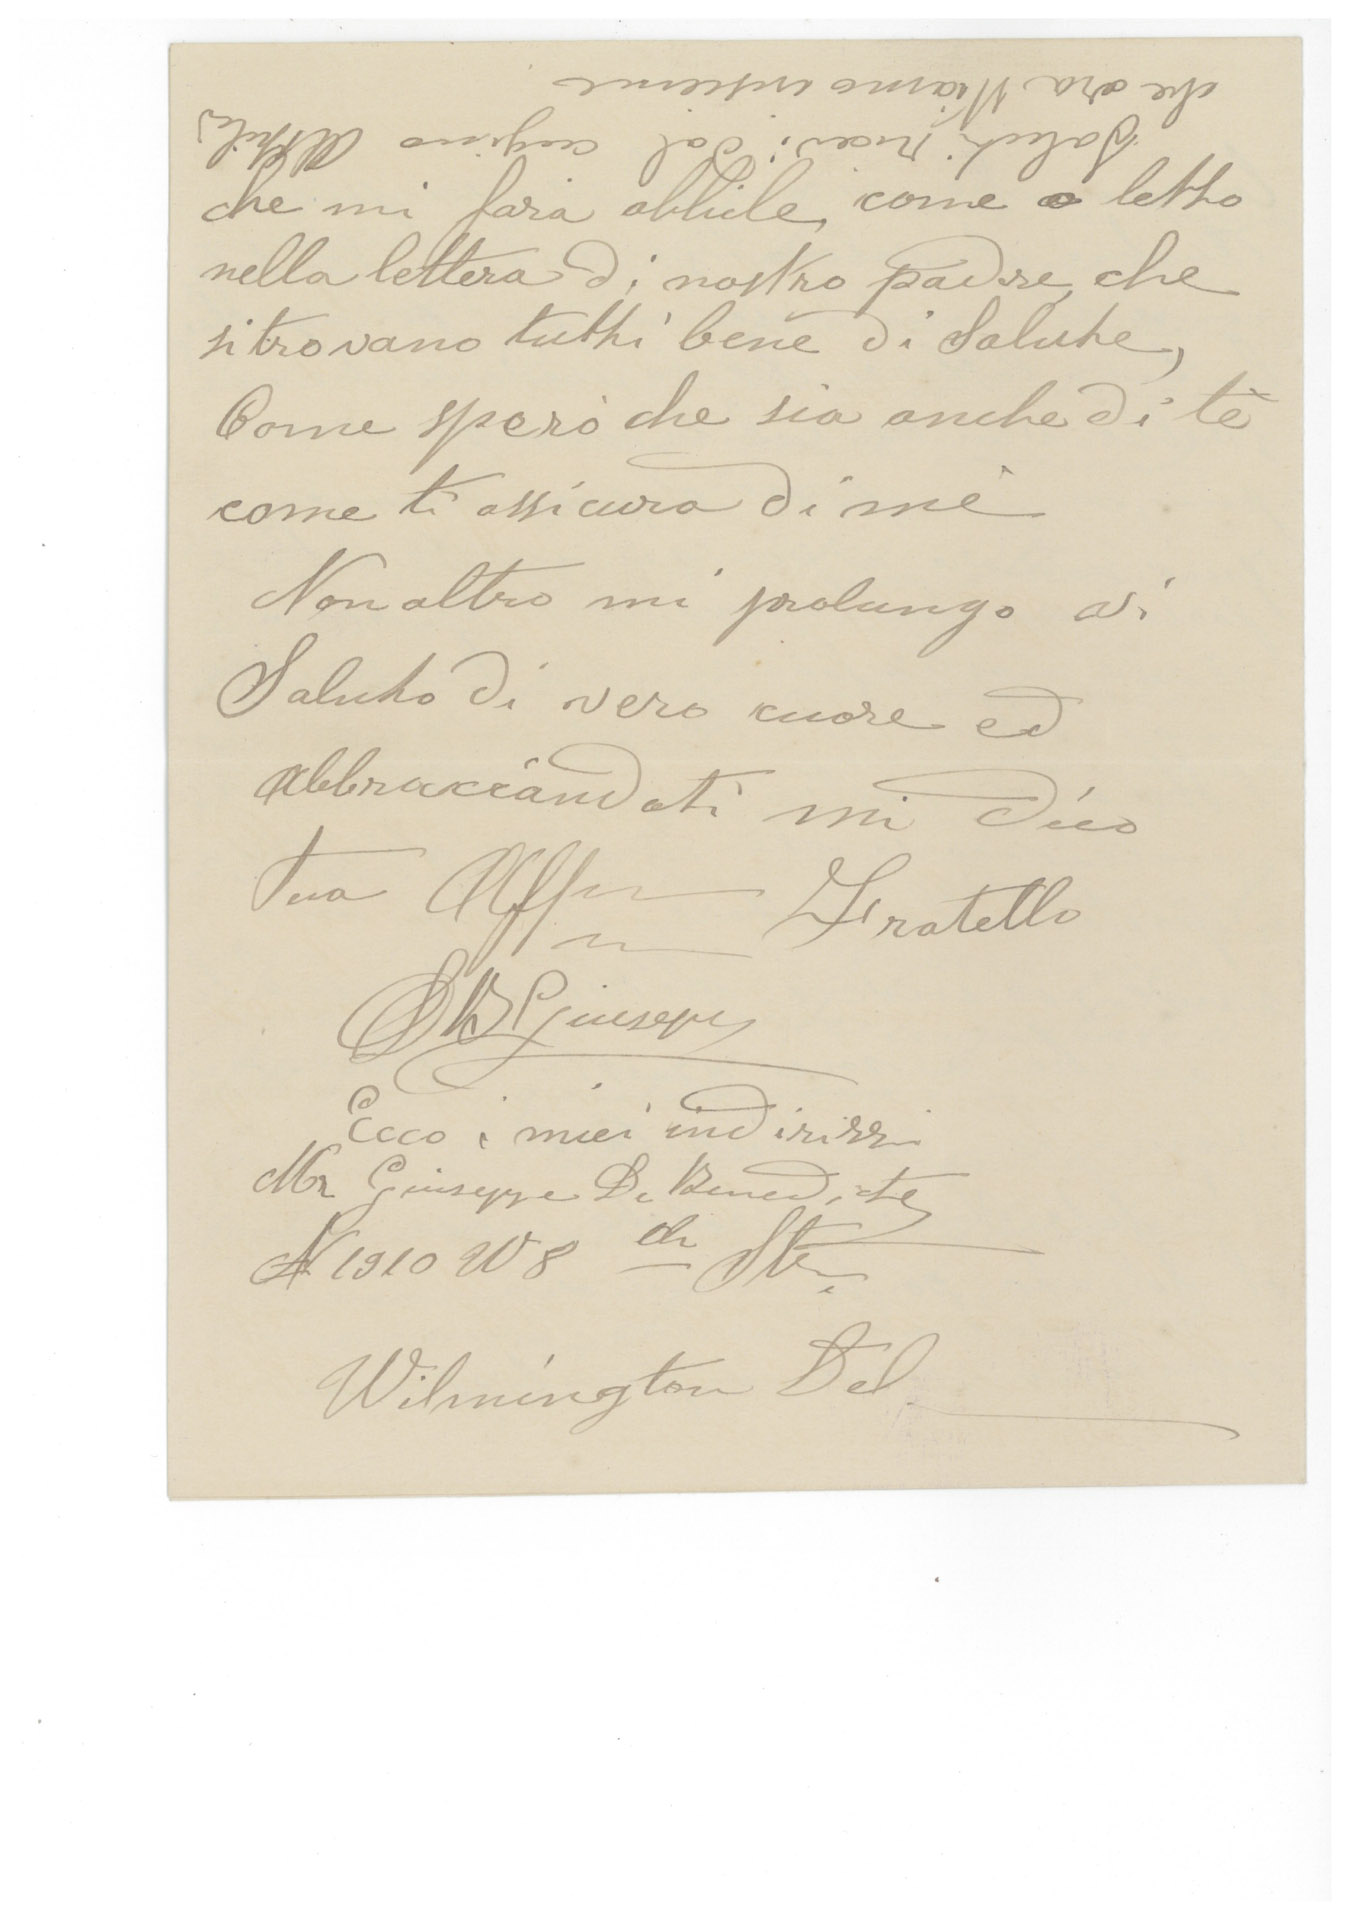 Saluti ricevi dal cugino Achille
che ora stiamo insieme
che mi fara abbile, come o letto
nella lettera di nostro padre, che
si trovano tutti bene di Salute,
Come sperò che sia anche di tè
come ti assicuro di mè
Non altro mi prolungo vi
Saluto di vero cuore ed
abbracciandoti mi dico
tuo Aff Fratello
DB Giusepp
Ecco i miei indirizzi
Mr Giuseppe De Benedictis
N 1910 W 8 th Ste.
Wilmington Del.